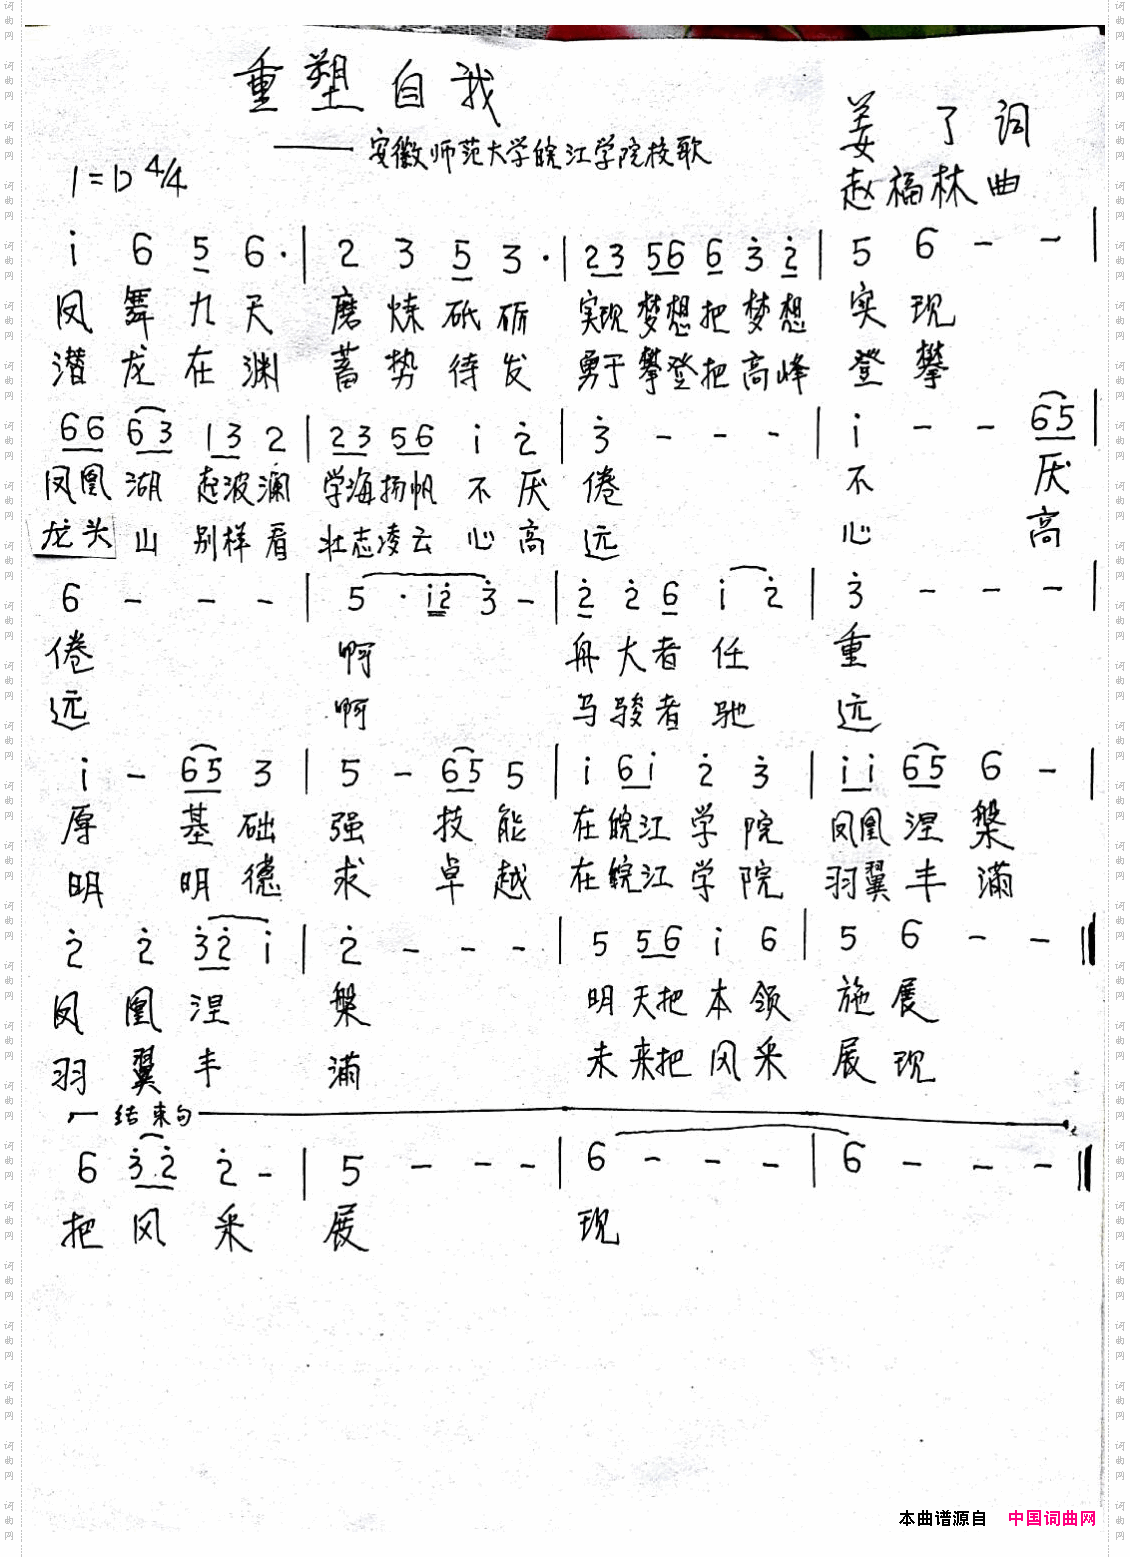 重塑自我
——安徽师范大学皖江学院校歌
姜了词
1=D 4/4
赵福林曲
i 6 5 6· | 2 3 5 3· | 23 56 6 3 2 | 5 6 - - |
凤舞九天 磨炼砥砺 实现梦想把梦想 实现
潜龙在渊 蓄势待发 勇于攀登把高峰 登攀
66 63 13 2 | 23 56 i 2 | 3 - - - | i - - 65 |
凤凰湖起波澜 学海扬帆不厌 倦 不厌
龙头山别样看 壮志凌云心高 远 心高
6 - - - | 5 · i2 3 - | 2 2 6 i 2 | 3 - - - |
倦 啊 舟大者任 重
远 啊 马骏者驰 远
i - 65 3 | 5 - 65 5 | i 6i 2 3 | ii 65 6 - |
厚基础 强技能 在皖江学院 凤凰涅槃
明明德 求卓越 在皖江学院 羽翼丰满
2 2 32 i | 2 - - - | 5 56 i 6 | 5 6 - - ||
凤凰涅 槃 明天把本领 施展
羽翼丰 满 未来把风采 展现
结束句
6 32 2 - | 5 - - - | 6 - - - | 6 - - - ||
把风采 展 现
本曲谱源自 中国词曲网